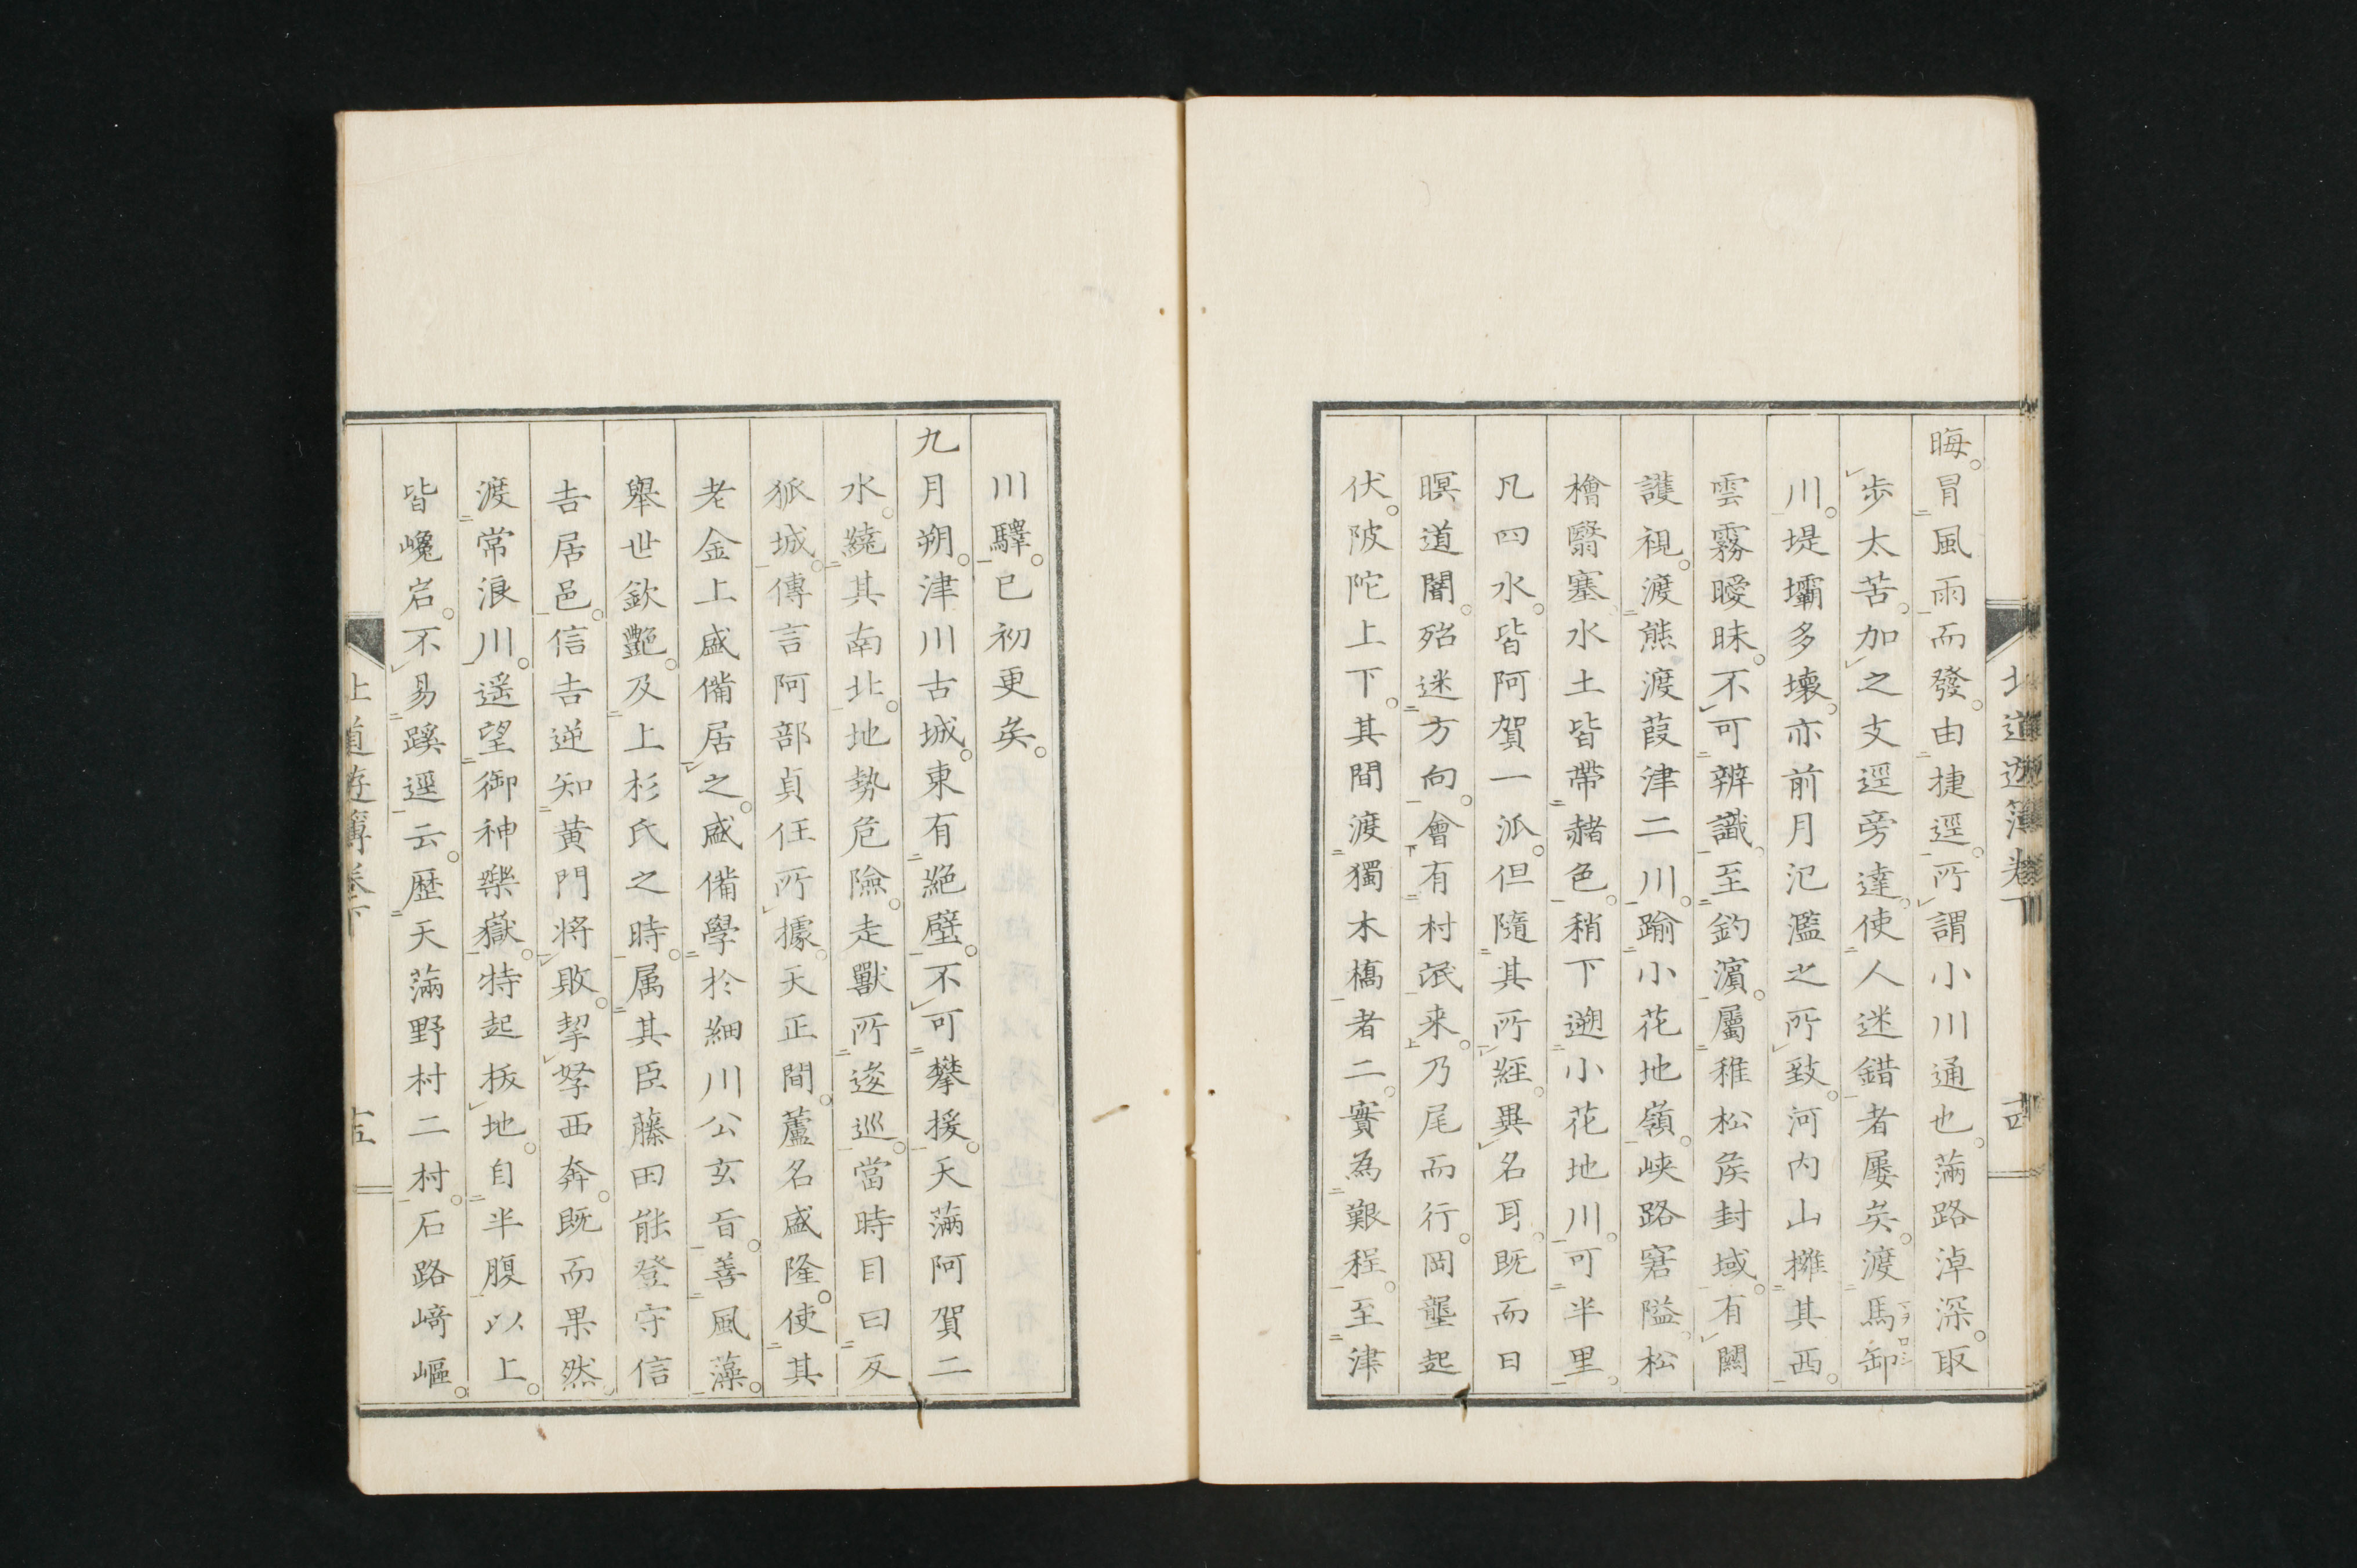 北道遊簿卷下
十四
晦。冒風雨而發。由捷逕。所謂小川通也。滿路淖深。取
歩太苦。加之支逕旁達。使人迷錯者屢矣。渡馬卸
川。堤壩多壊。亦前月汜濫之所致。河内山擁其西。
雲霧曖昧。不可辨識。至釣濵。屬稚松矦封域。有關
護視。渡熊渡葭津二川。踰小花地嶺。峡路窘隘。松
檜翳塞。水土皆帶赭色。稍下遡小花地川。可半里。
凡四水。皆阿賀一派。但隨其所經。異名耳。既而日
暝道闇。殆迷方向。會有村氓来。乃尾而行。岡壟起
伏。陂陀上下。其間渡獨木橋者二。實為艱程。至津
川驛。已初更矣。
九月朔。津川古城。東有絶壁。不可攀援。天滿阿賀二
水。繞其南北。地勢危險。走獸所逡巡。當時目曰反
狐城。傳言阿部貞任所據。天正間。蘆名盛隆。使其
老金上盛備居之。盛備學於細川公玄旨。善風藻。
舉世欽艷。及上杉氏之時。属其臣藤田能登守信
吉居邑。信吉逆知黄門將敗。挈孥西奔。既而果然。
渡常浪川。遥望御神樂嶽。特起拔地。自半腹以上。
皆巉岩。不易蹊逕云。歴天滿野村二村。石路﨑嶇。
北道遊簿卷下
十五